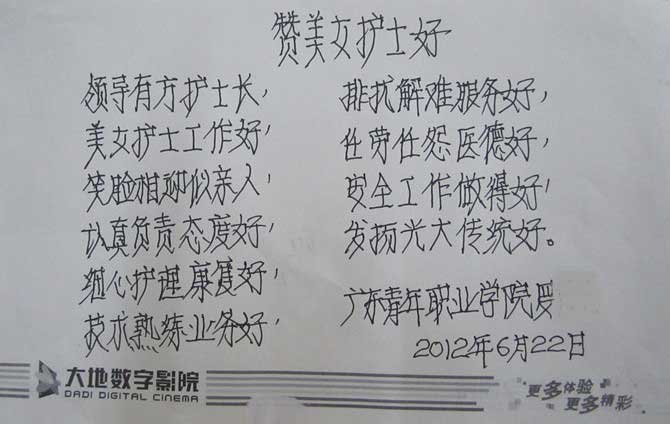 赞美女护士好
领导有方护士长，
美女护士工作好，
笑脸相迎似亲人，
认真负责态度好，
细心护理康复好，
技术熟练业务好，
排扰解难服务好，
任劳任怨医德好，
安全工作做得好，
发扬光大传统好。
广东青年职业学院
2012年6月22日
大地数字影院
DADI DIGITAL CINEMA
更多体验
更多精彩